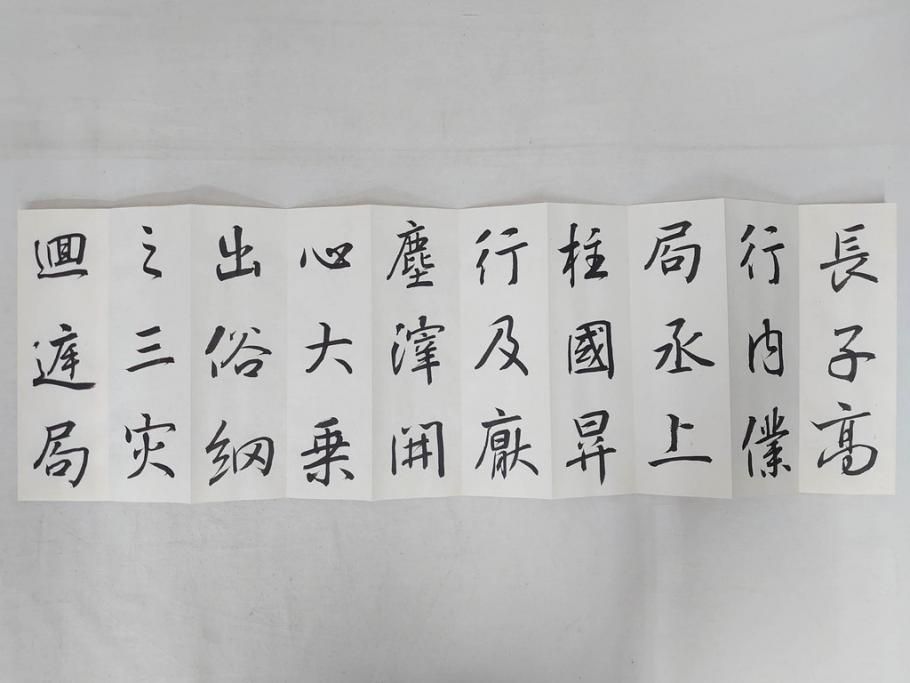 長子高
行内僕
局丞上
柱國昇
行及厥
塵滓開
心大乗
出俗網
之三灾
迴遊局